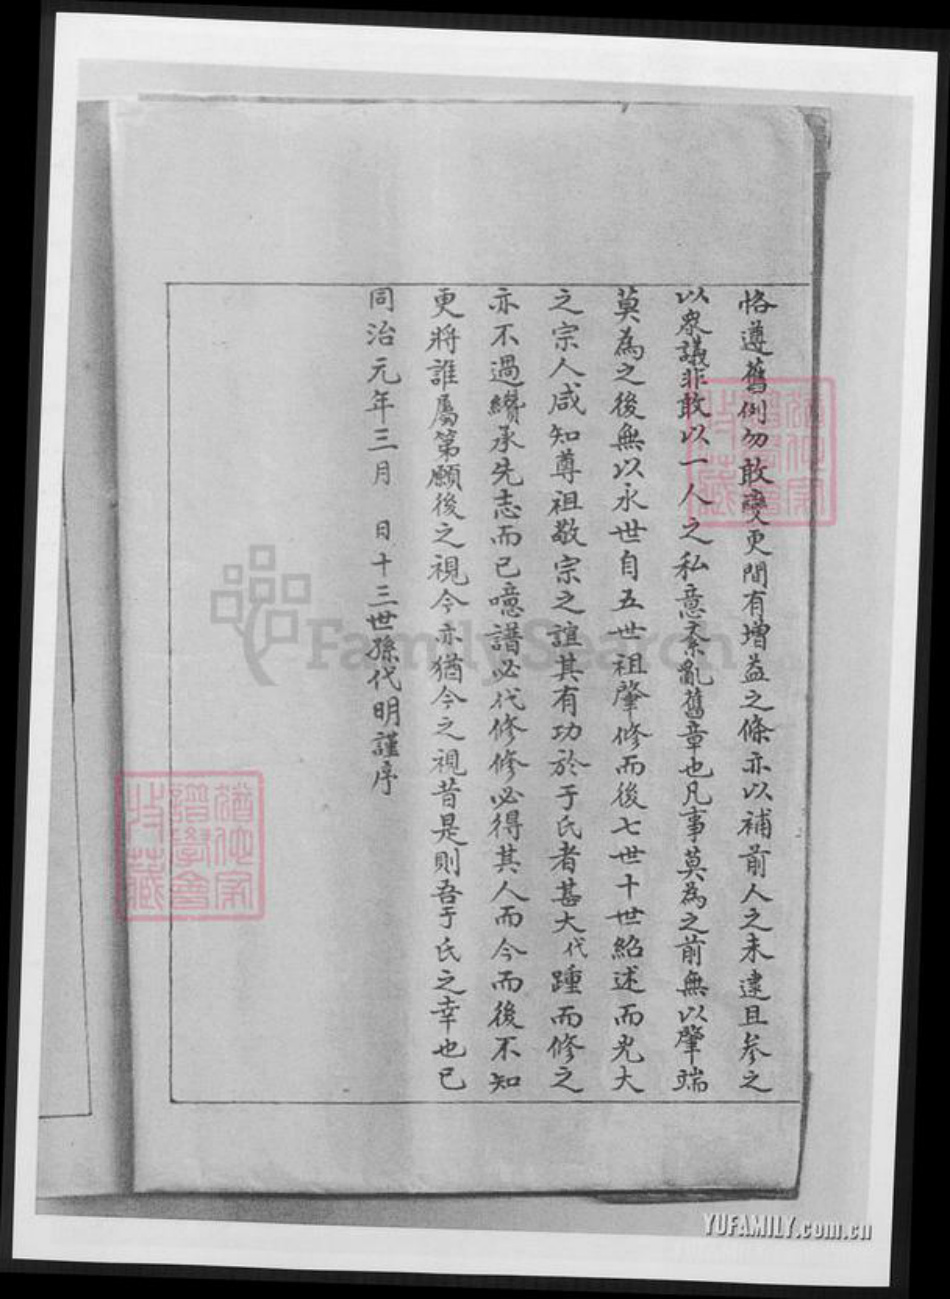 恪遵舊例勿敢變更間有增益之條亦以補前人之未逮且參之
以衆議非敢以一人之私意紊亂舊章也凡事莫為之前無以肇端
莫為之後無以永世自五世祖肇修而後七世十世紹述而光大
之宗人咸知尊祖敬宗之誼其有功於于氏者甚大代踵而修之
亦不過纘承先志而已噫譜必代修修必得其人而今而後不知
更將誰屬第願後之視今亦猶今之視昔是則吾于氏之幸也已
同治元年三月 日十三世孫代明謹序
FamilySearch
YUFAMILY.com.cn